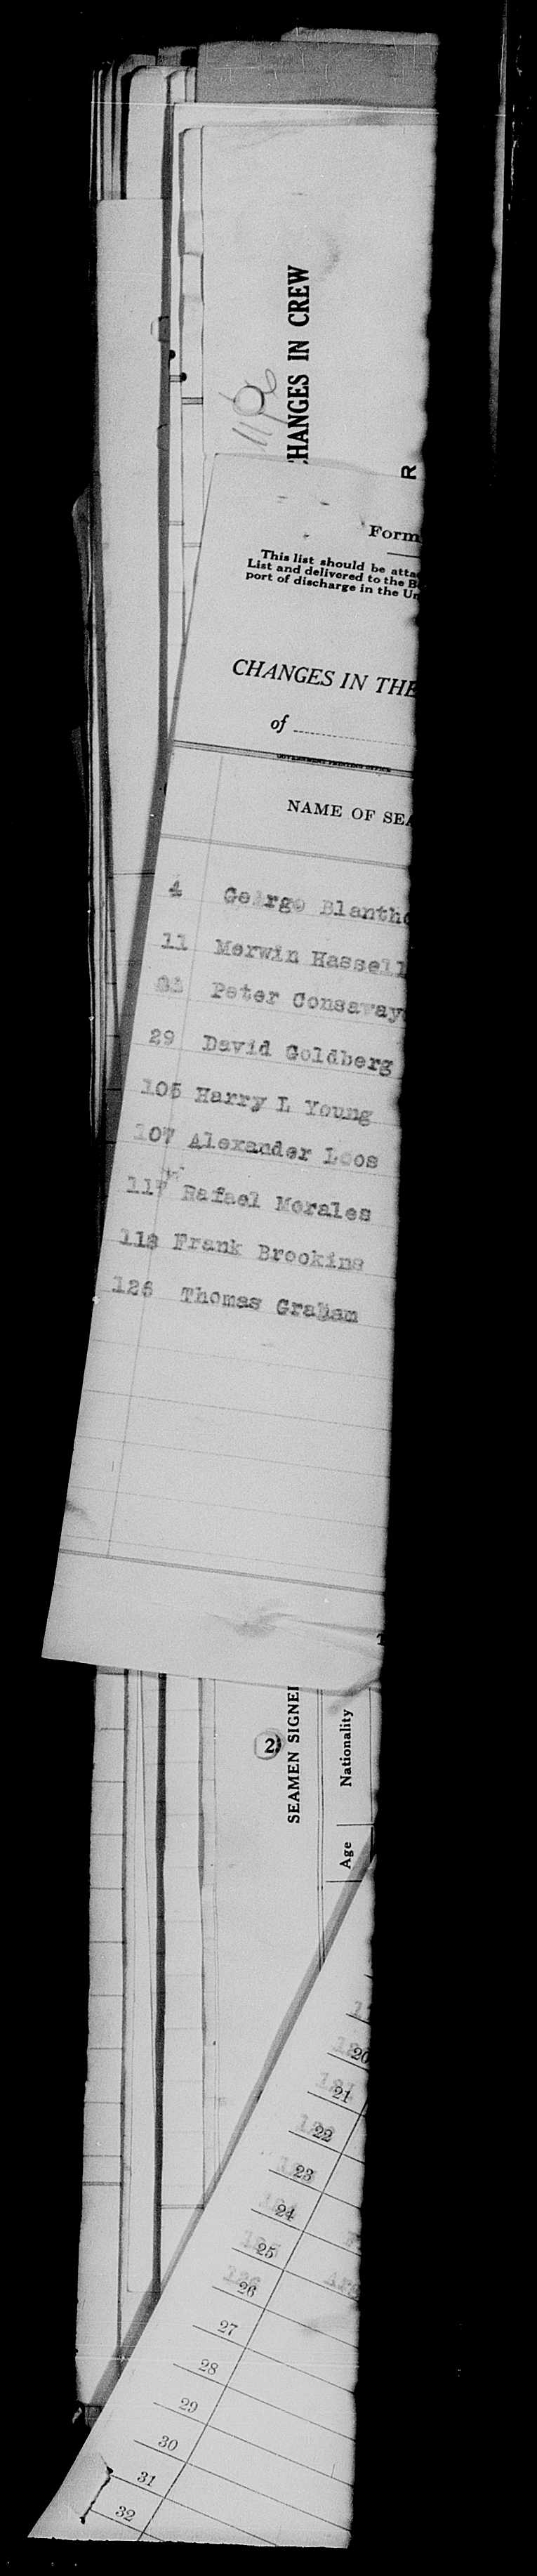 HANGES IN CREW
R
Form
This list should be atta
List and delivered to the B
port of discharge in the Un
CHANGES IN THE
of
GOVERNMENT PRINTING OFFICE
NAME OF SEA
4 George Blantho
11 Merwin Hassell
Peter Consavay
29 David Goldberg
105 Harry L Young
107 Alexander Loos
117 Rafael Morales
118 Frank Brookins
126 Thomas Graham
2
SEAMEN SIGNE
Nationality
Age
20
121 21
122 22
123 23
124 24
125 25
126 26
27
28
29
30
31
32